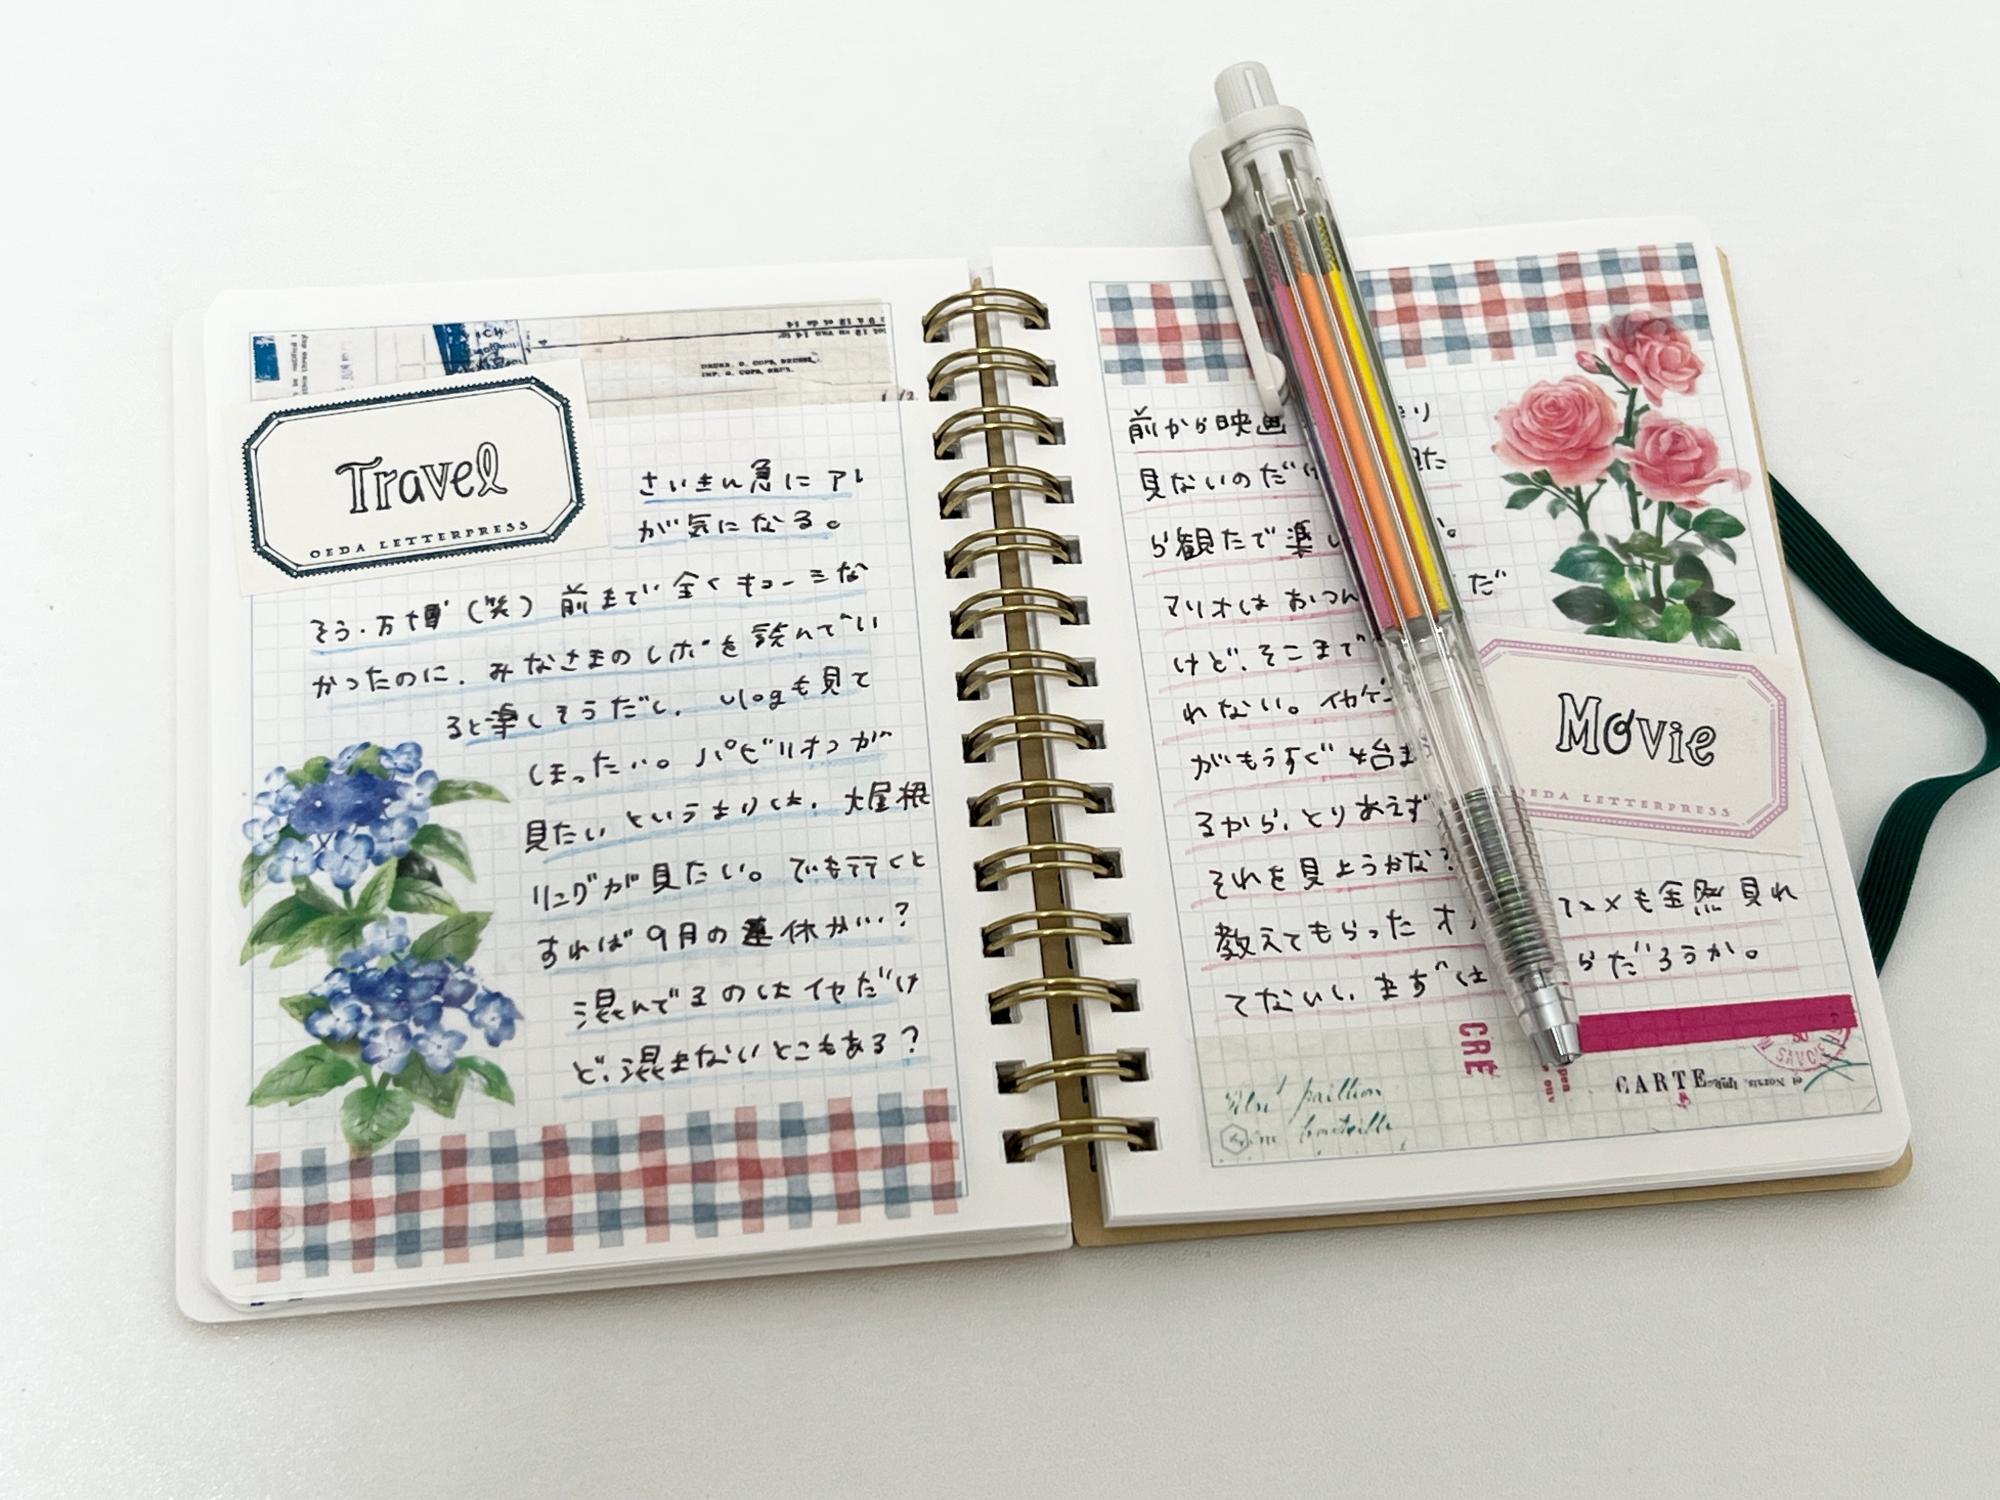 Travel
OEDA LETTERPRESS
さいきん急に アレ
が気になる。
そう.万博(笑) 前まで全くキョーミな
かったのに、みなさまのレポを読んでい
ると楽しそうだし、vlogも見て
しまったい。パビリオンが
見たいというよりは、大屋根
リングが見たい。でも行くと
すれば9月の連休か…?
混んでるのはイヤだけ
ど、混まないとこもある?
DRUKK. G. COPE, BRUSSEL
IMP. G. COPE, BRUX.
前から映画
見ないのだけ
ら観たで楽し
マリオはおつん だ
けど、そこまで
れない。イカゲ
がもうすぐ始ま
るから、とりあえず
それを見ようかな?
教えてもらった アニメも全然見れ
てないし、まずは らだろうか。
Movie
OEDA LETTERPRESS
CRE
CARTE
SAVOIE